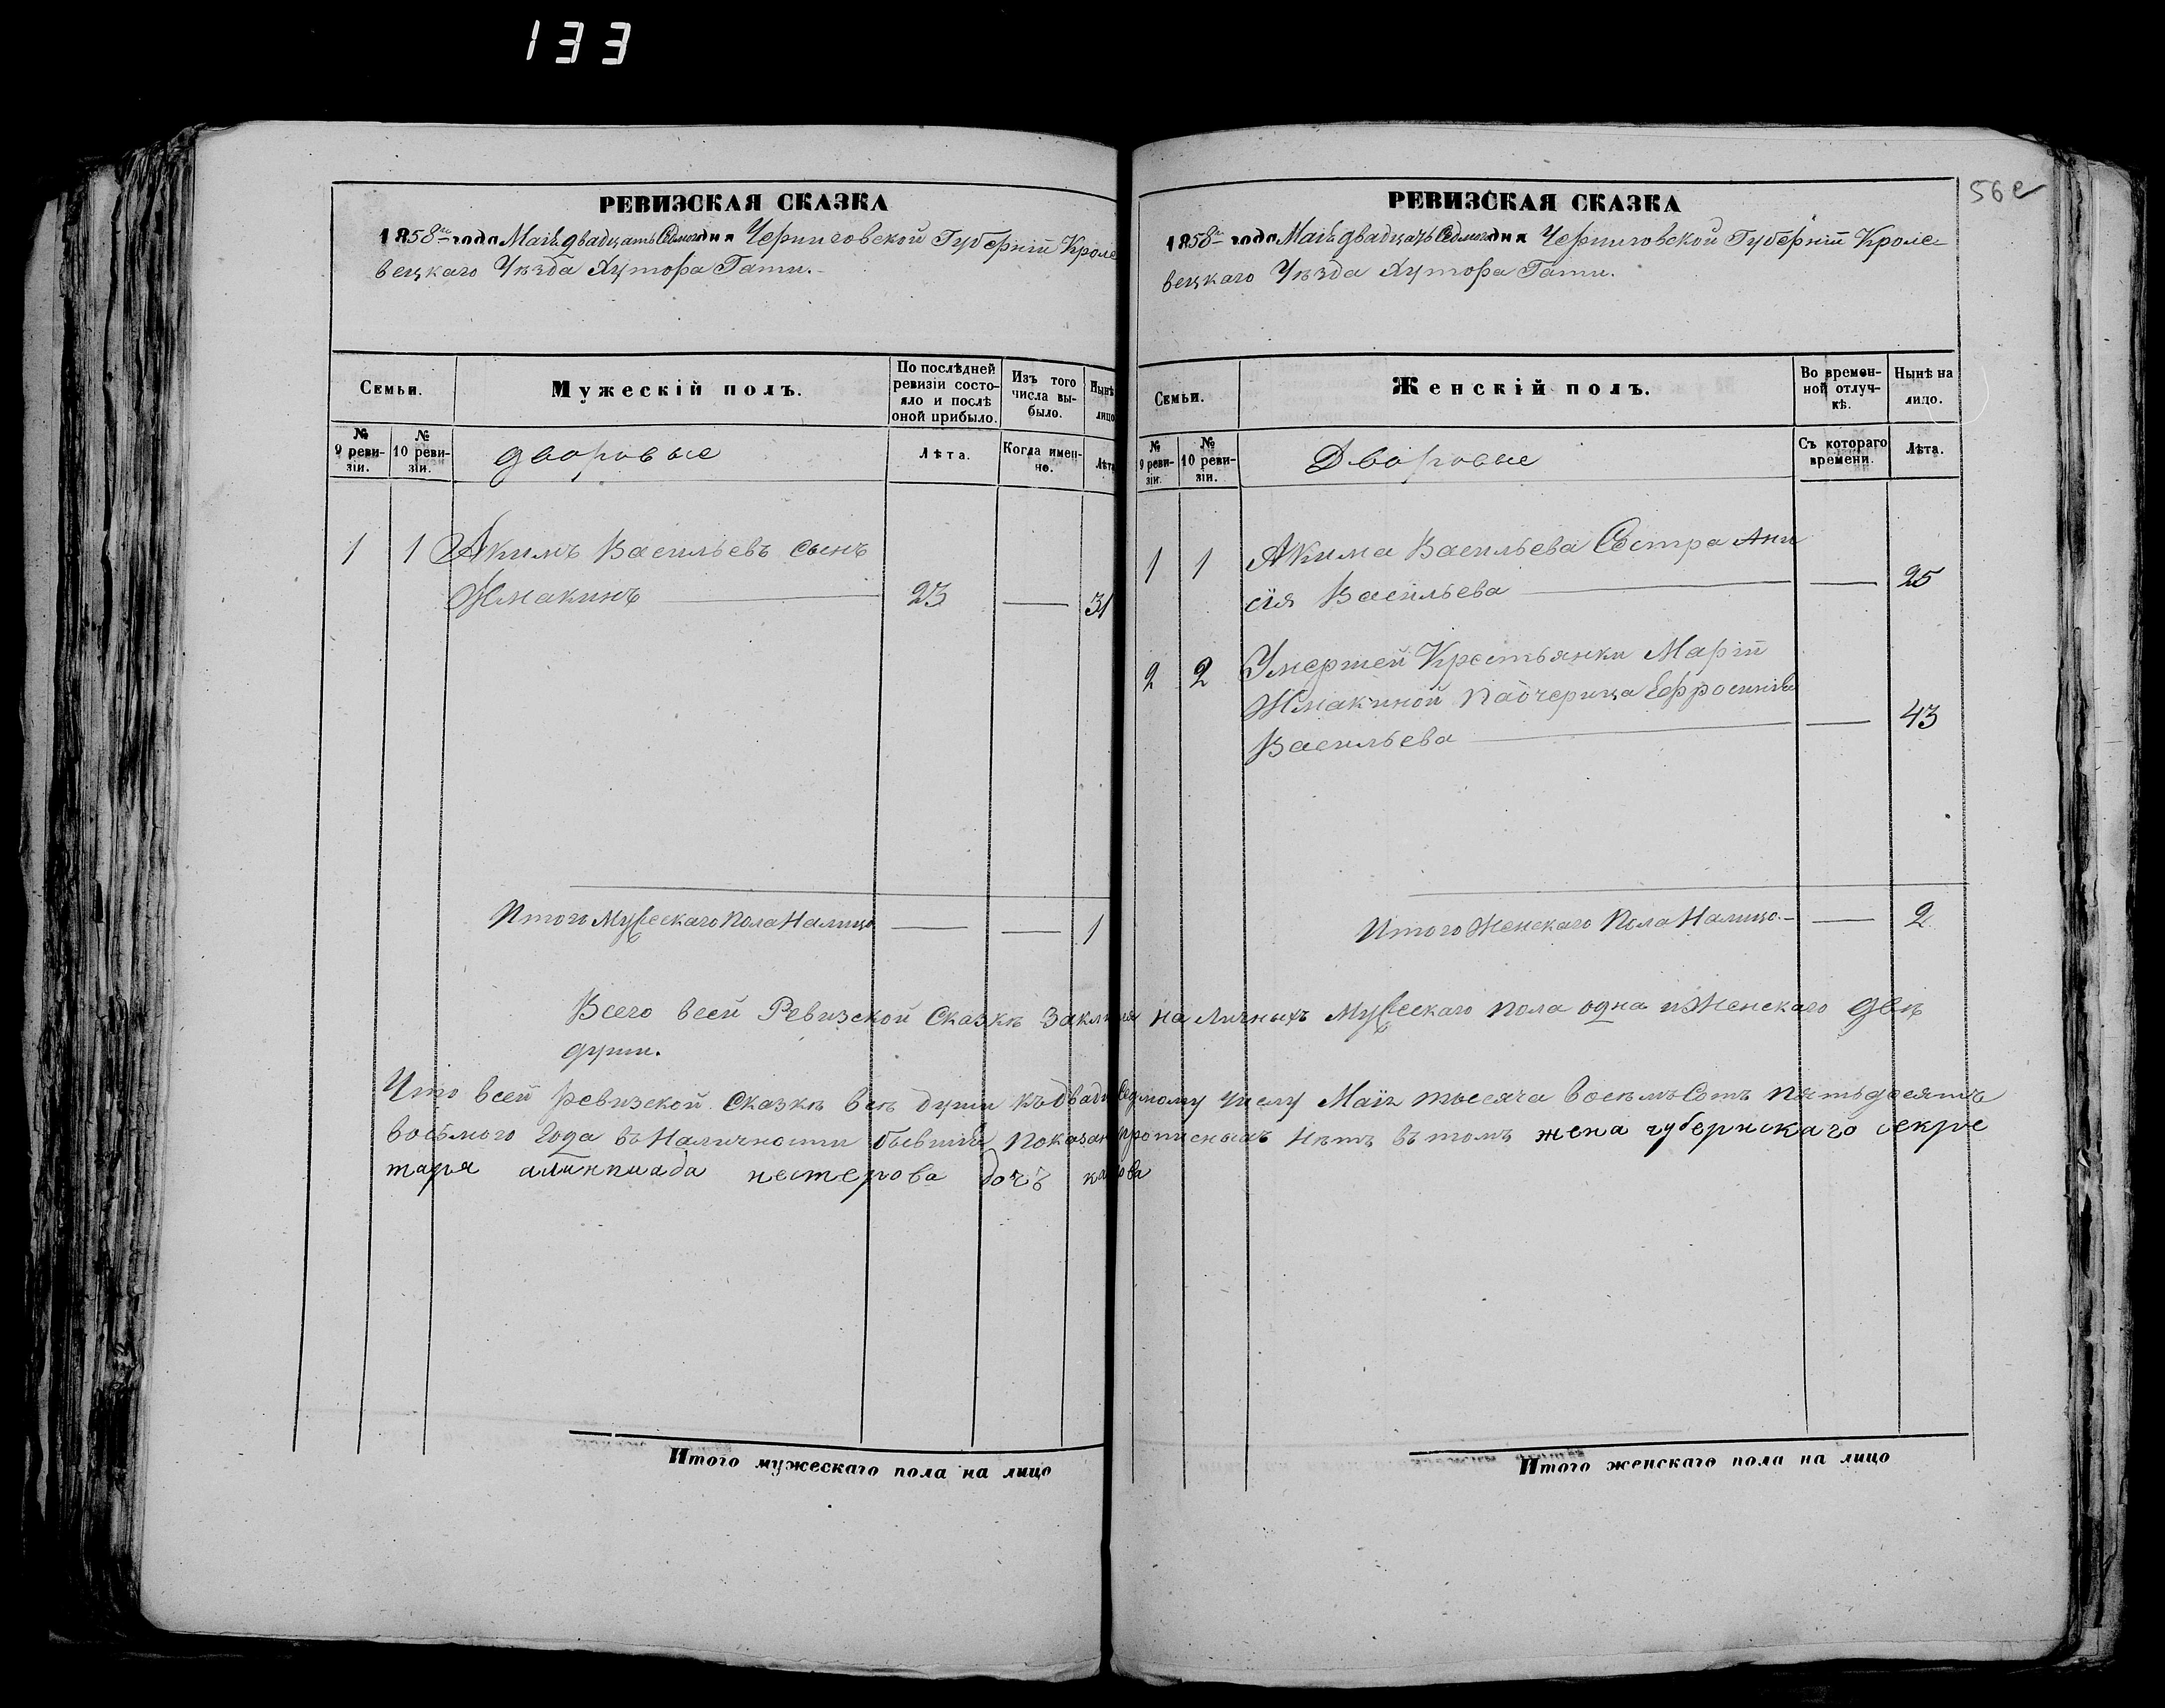 133
56 е
РЕВИЗСКАЯ СКАЗКА
1858го года Маія двадцать Седмого дня Черниговской Губерніи Кроле
вецкаго Уѣзда Хутора Гати.
Семьи.
Мужескій полъ.
По послѣдней ревизіи состояло и послѣ оной прибыло.
Изъ того числа выбыло.
Нынѣ лицо
№ 9 ревизіи.
№ 10 ревизіи.
дворовые
Лѣта.
Когда именно.
Лѣта
1 1 Акимъ Васильевъ сынъ
Жмакинъ 23 — 31
Итого Мужескаго Пола Налицо — — 1
РЕВИЗСКАЯ СКАЗКА
1858го года Маія двадцать Седмого дня Черниговской Губерніи Кроле-
вецкаго Уѣзда Хутора Гати.
Семьи.
Женскій полъ.
Во временной отлучкѣ.
Нынѣ на лицо.
№ 9 ревизіи.
№ 10 ревизіи.
Дворовые
Съ котораго времени.
Лѣта.
1 1 Акима Васильева Сестра Ани
сія Васильева — 25
2 2 Умершей Крестьянки Маріи
Жмакиной Падчерица Ефросинія
Васильева — 43
Итого Женскаго Пола Налицо — — 2
Всего всей Ревизской Сказкѣ на Личныхъ Мужескаго пола одна и Женскаго двѣ
души.
Что всей ревизской Сказкѣ всѣ души Седмому числу Маія тысяча восемъ Сотъ пятьдесятъ
восьмого года въ Наличности бывшія прописныхъ нѣтъ въ томъ жена губернскаго секре
таря алимпиада нестерова дочъ
Итого мужескаго пола на лицо
Итого женскаго пола на лицо